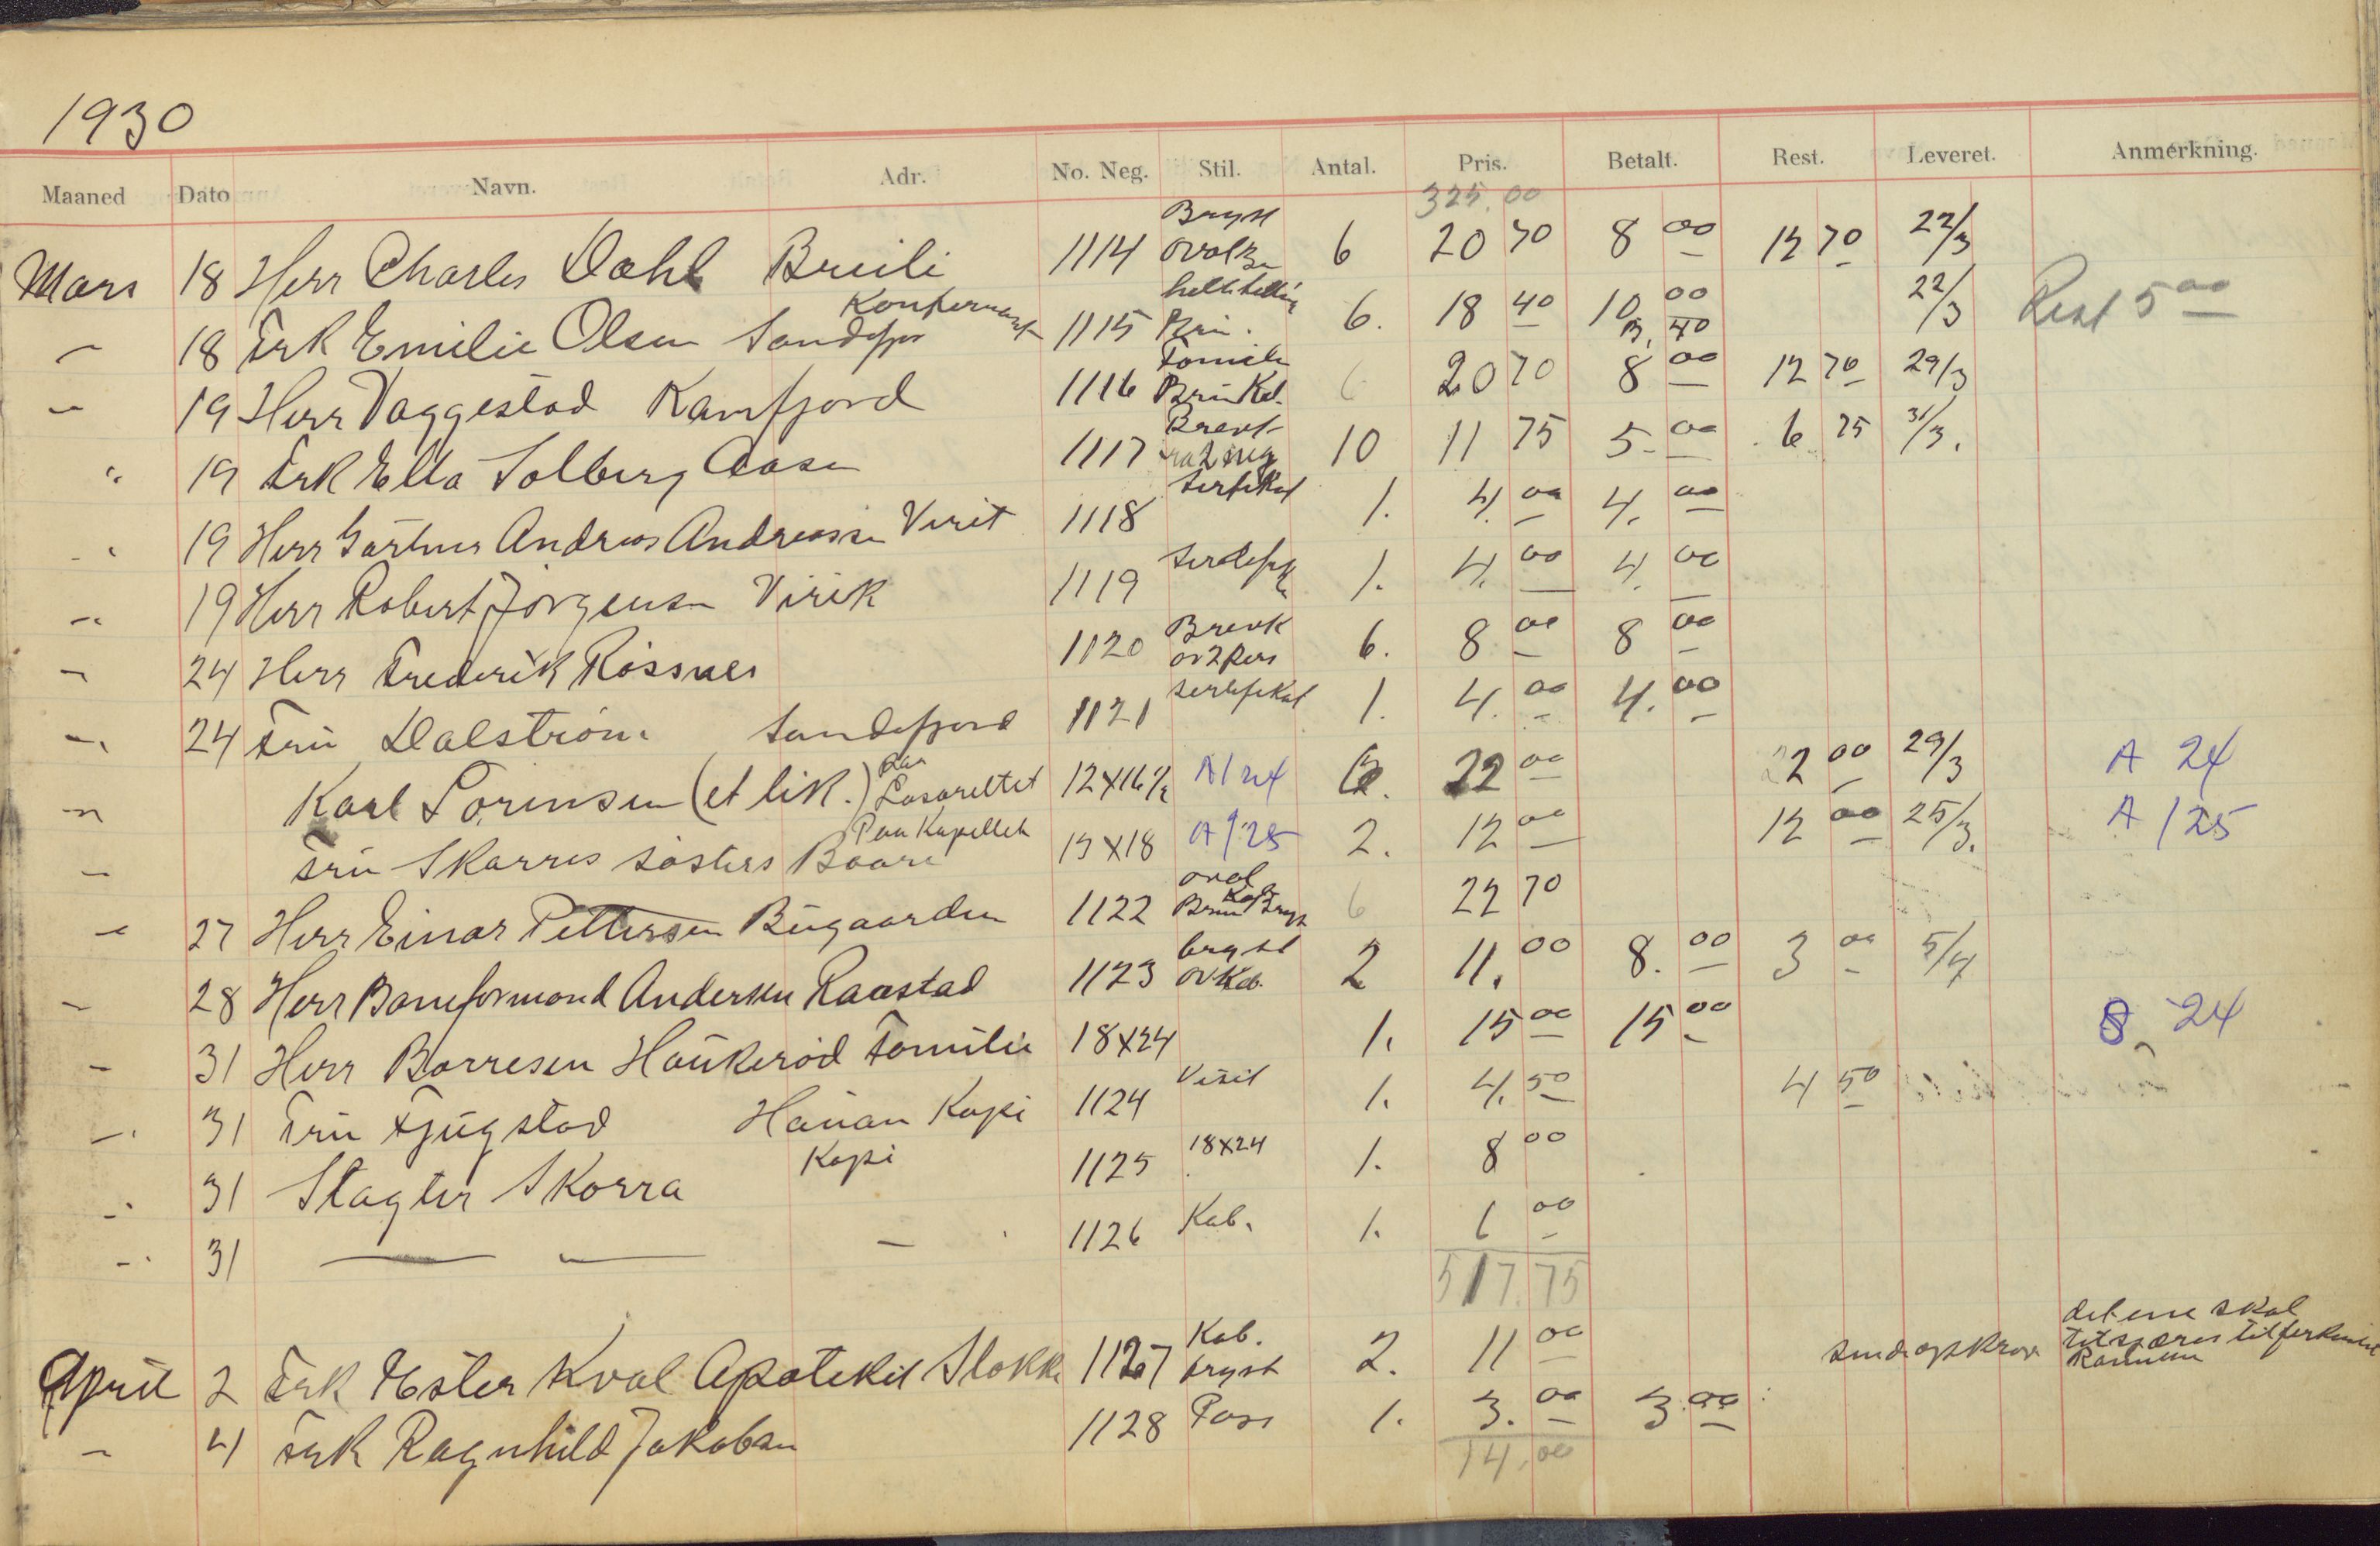 1930
Maaned Dato Navn. Adr. No. Neg. Stil. Antal. Pris. Betalt. Rest. Leveret. Anmerkning.
325.00
Mars 18 Herr Charles Dahl 1114 Bryst oval 6 20 70 8 00 12 70 22/3
18 Frk Emilie Olsen Konfermant 1115 6. 18 40 10 00 40 22/3 Rest 5 00
19 Herr Vaggestad Kamfjord 1116 Familie Brun Kab. 6 20 70 8 00 12 70 29/3
19 Frk Ella Solberg Aasen 1117 10 11 75 5- 00 6 75 31/3.
19 Herr Gartner Andreas Andreassen Virik 1118 1. 4. 00 4. 00
19 Herr Robert Jörgensen Virik 1119 1. 4. 00 4. 00
24 Herr Frederik Rössnes 1120 6. 8 00 8 00
24 Fru Dalström Sandefjord 1121 Sertifikat 1. 4. 00 4. 00
Karl Sörensen (et lik.) Paa Lasarettet 12X16½ A/24 6. 22 00 22 00 29/3 A 24
Fru Skarres sösters Baare Paa Kapellet 13X18 A/25 2. 12 00 12 00 25/3. A/25
27 Herr Einar Pettersen Bugaarden 1122 oval Kab Brun Bryst 6 22 70
28 Herr Bomformand Andersen Raastad 1123 bryst ov Kab. 2 11. 00 8. 00 3 00 5/4
31 Herr Borresen Haukeröd Familie 18X24 1. 15 00 15 00 8 24
31 Fru Fjugstad Hauan Kopi 1124 Visit 1. 4. 50 4 50
31 Slagter Skorra Kopi 1125 18X24 1. 8 00
31 — — — 1126 Kab. 1. 6 00
517.75
April 2 Frk Ester Kval Apoteket Stokke 1127 Kab. bryst 2. 11 00 det ene skal
4 Frk Ragnhild Jakobsen 1128 Pass 1. 3. 00 3. 00
14.00